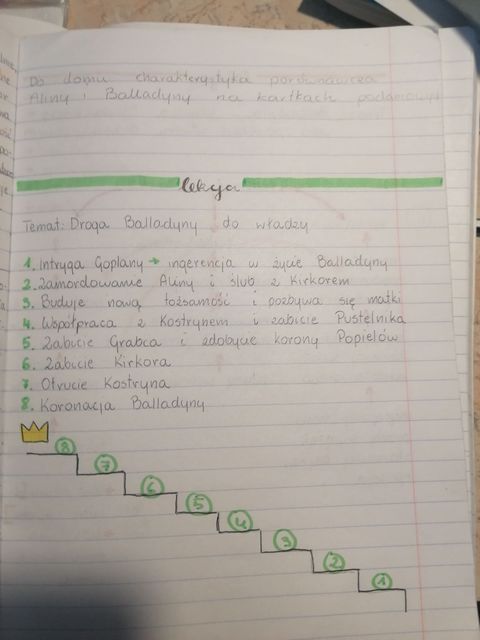 Do domu charakterystyka porównawcza
Aliny i Balladyny na kartkach
lekcja
Temat: Droga Balladyny do władzy
1. Intryga Goplany → ingerencja w życie Balladyny
2. Zamordowanie Aliny i ślub z Kirkorem
3. Buduje nową tożsamość i pozbywa się matki
4. Współpraca z Kostrynem i zabicie Pustelnika
5. Zabicie Grabca i zdobycie korony Popielów
6. Zabicie Kirkora
7. Otrucie Kostryna
8. Koronacja Balladyny
8
7
6
5
4
3
2
1